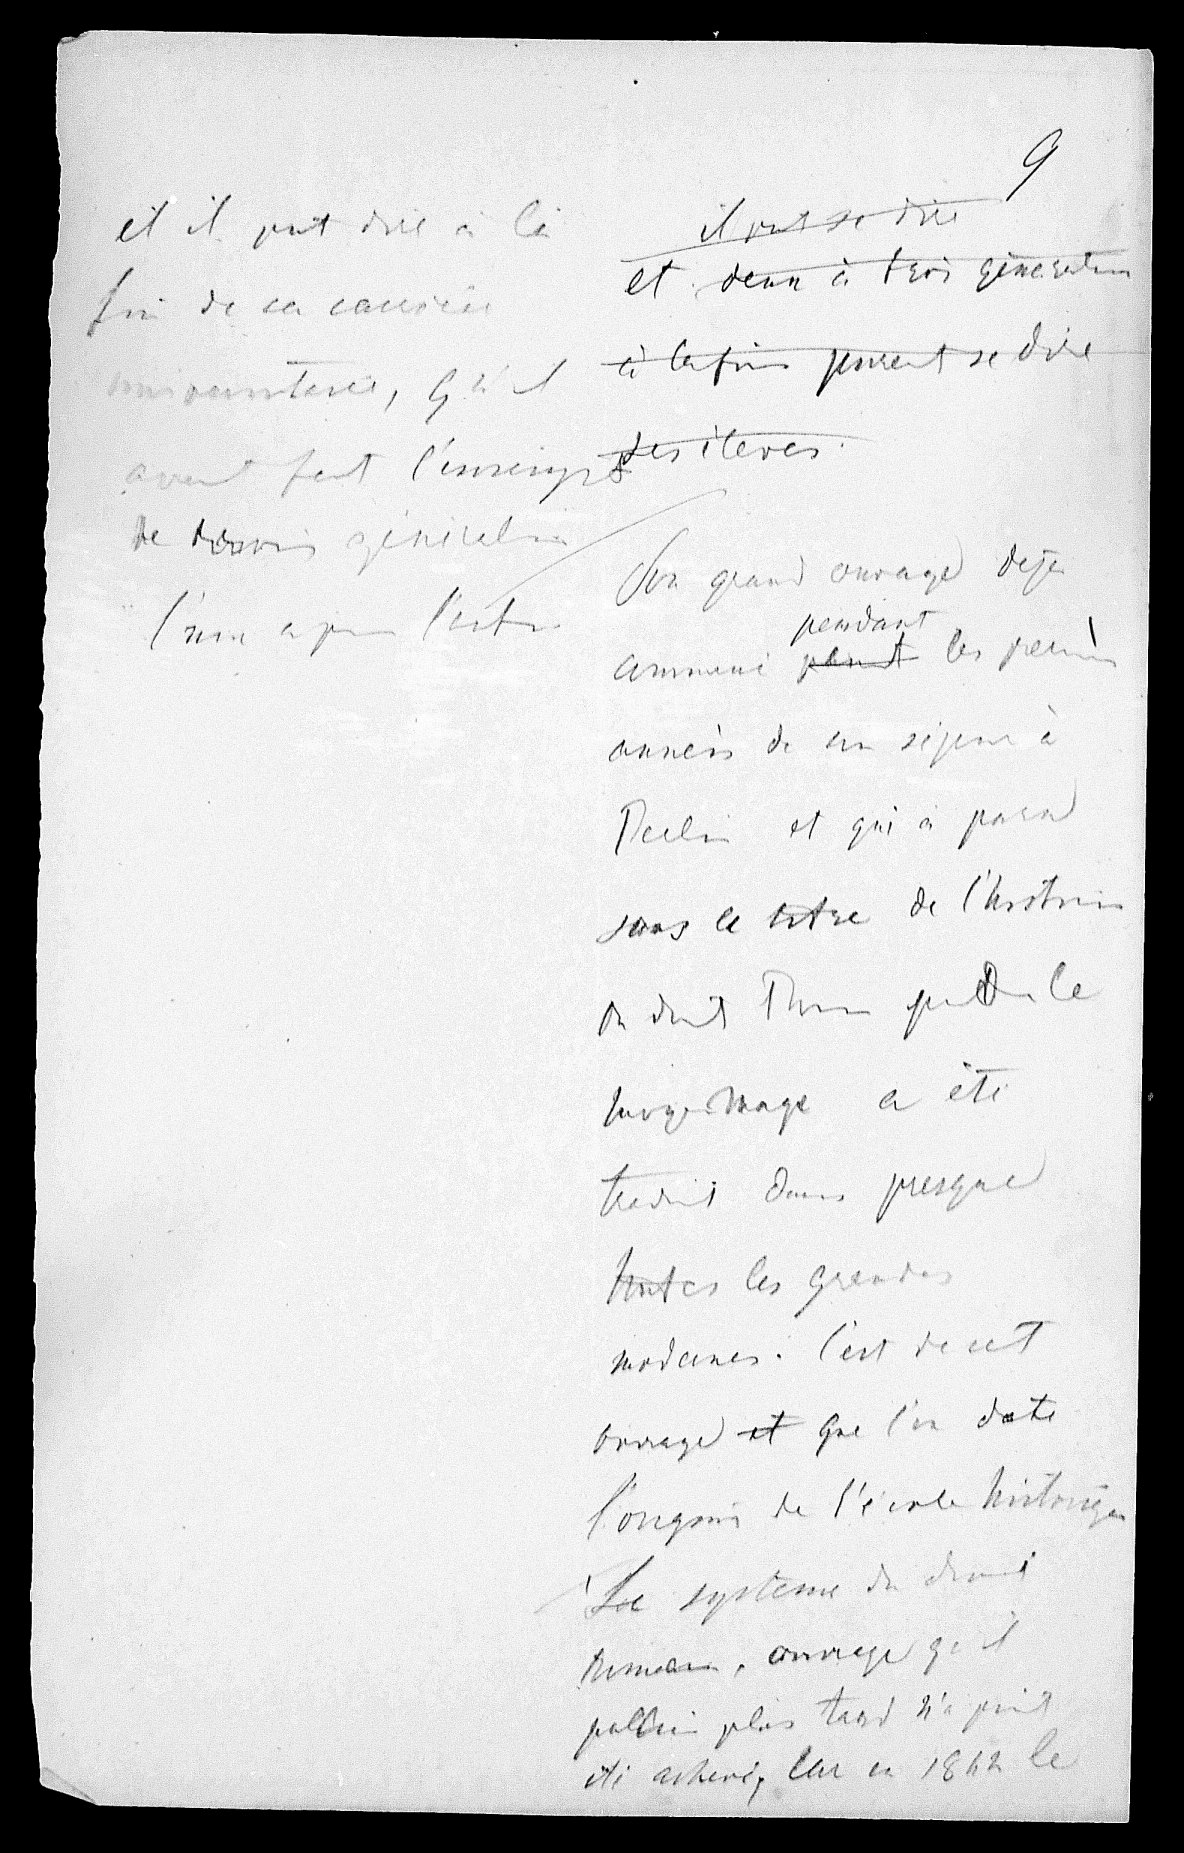 9
et il put dire à la
fin de sa carrière
universitaire, qu'il
avait fait l'enseignt
de trois générations
l'une après l'autre
il put se dire
et deux à trois générations
à la fin peuvent se dire
ses élèves.
Son grand ouvrage déja
commencé pendant les premières
années de son séjour à
Berlin et qui a paru
sous le titre de l'histoire
du droit Romain pendant le
moyen age a été
traduit dans presque
toutes les grandes
modernes. C'est de cet
ouvrage et que l'on date
l'origine de l'école historique
Le systeme du droit
romain, ouvrage qu'il
publia plus tard n'a point
été achevé, car en 1842 le